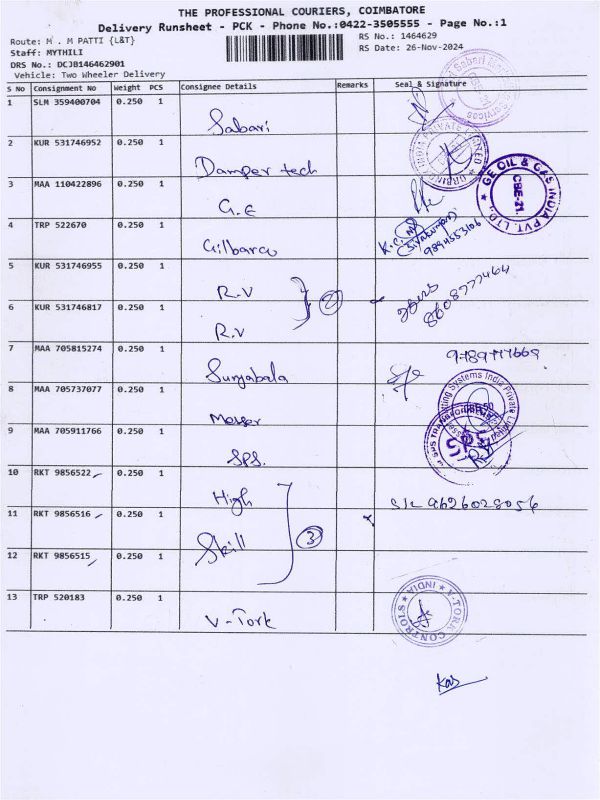 THE PROFESSIONAL COURIERS, COIMBATORE
Delivery Runsheet - PCK - Phone No.:0422-3505555 - Page No.:1
Route: M . M PATTI {L&T}
RS No.: 1464629
Staff: MYTHILI
RS Date: 26-Nov-2024
DRS No.: DCJB146462901
Vehicle: Two Wheeler Delivery
S No Consignment No Weight PCS Consignee Details Remarks Seal & Signature
1 SLM 359400704 0.250 1 Sabari
2 KUR 531746952 0.250 1 Damper tech
3 MAA 110422896 0.250 1 G.E
GE OIL & GAS INDIA PVT. LTD.
CBE-21.
4 TRP 522670 0.250 1 Gilbarco
5 KUR 531746955 0.250 1 R.V
2
6 KUR 531746817 0.250 1 R.V
7 MAA 705815274 0.250 1 Suryabala
9789777669
8 MAA 705737077 0.250 1 Messer
9 MAA 705911766 0.250 1 SPS.
10 RKT 9856522 0.250 1 High
11 RKT 9856516 0.250 1 Skill
9626028056
3
12 RKT 9856515 0.250 1
13 TRP 520183 0.250 1 V-Tork
V-TORK CONTROLS ★ INDIA ★